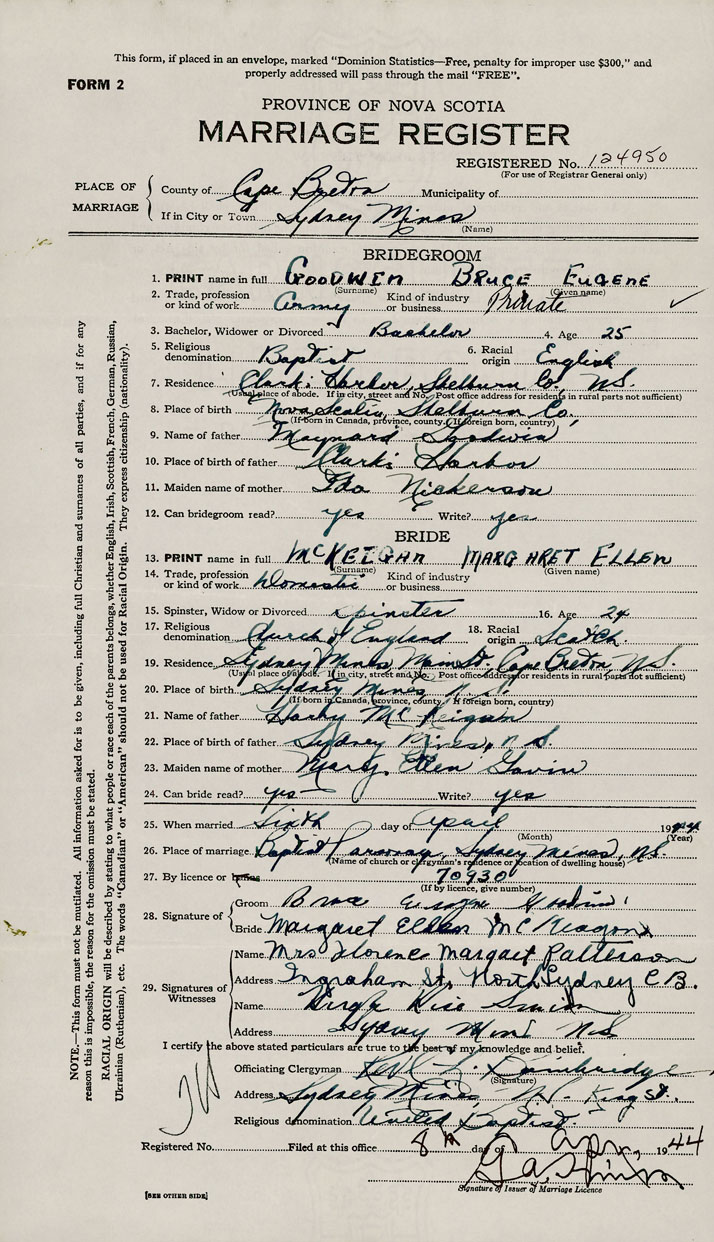 This form, if placed in an envelope, marked “Dominion Statistics—Free, penalty for improper use $300,” and
properly addressed will pass through the mail “FREE”.
FORM 2
PROVINCE OF NOVA SCOTIA
MARRIAGE REGISTER
REGISTERED No. 124950
(For use of Registrar General only)
PLACE OF MARRIAGE
County of Cape Breton Municipality of
If in City or Town Sydney Mines
(Name)
BRIDEGROOM
1. PRINT name in full GOODWIN BRUCE EUGENE
(Surname) (Given name)
2. Trade, profession or kind of work Army Kind of industry or business Private
3. Bachelor, Widower or Divorced Bachelor 4. Age 25
5. Religious denomination Baptist 6. Racial origin English
7. Residence Clark's Harbor, Shelburn Co., N.S.
(Usual place of abode. If in city, street and No. Post office address for residents in rural parts not sufficient)
8. Place of birth Nova Scotia, Shelburn Co.
(If born in Canada, province, county. If foreign born, country)
9. Name of father Maynard Goodwin
10. Place of birth of father Clark's Harbor
11. Maiden name of mother Ida Nickerson
12. Can bridegroom read? yes Write? yes
BRIDE
13. PRINT name in full MCKEIGAN MARGARET ELLEN
(Surname) (Given name)
14. Trade, profession or kind of work Domestic Kind of industry or business
15. Spinster, Widow or Divorced Spinster 16. Age 24
17. Religious denomination Church of England 18. Racial origin Scotch
19. Residence Sydney Mines, Main St. Cape Breton, N.S.
(Usual place of abode. If in city, street and No. Post office address for residents in rural parts not sufficient)
20. Place of birth Sydney Mines N.S.
(If born in Canada, province, county. If foreign born, country)
21. Name of father McKeigan
22. Place of birth of father Sydney Mines, N.S.
23. Maiden name of mother Mary Ellen Gavin
24. Can bride read? yes Write? yes
25. When married Sixth day of April 1944
(Month) (Year)
26. Place of marriage Baptist Parsonage, Sydney Mines, N.S.
(Name of church or clergyman's residence or location of dwelling house)
27. By licence or banns 70930
(If by licence, give number)
28. Signature of
Groom Bruce Eugene Goodwin
Bride Margaret Ellen McKeagan
29. Signatures of Witnesses
Name Mrs Florence Margaret Patterson
Address Ingraham St, North Sydney C B.
Name Smith
Address Sydney Mines N.S
I certify the above stated particulars are true to the best of my knowledge and belief.
Officiating Clergyman
(Signature)
Address Sydney Mines King St.
Religious denomination United Baptist
Registered No. Filed at this office 8th day of Apr. 1944
Signature of Issuer of Marriage Licence
[SEE OTHER SIDE]
NOTE.—This form must not be mutilated. All information asked for is to be given, including full Christian and surnames of all parties, and if for any
reason this is impossible, the reason for the omission must be stated.
RACIAL ORIGIN will be described by stating to what people or race each of the parents belongs, whether English, Irish, Scottish, French, German, Russian,
Ukrainian (Ruthenian), etc. The words “Canadian” or “American” should not be used for Racial Origin. They express citizenship (nationality).